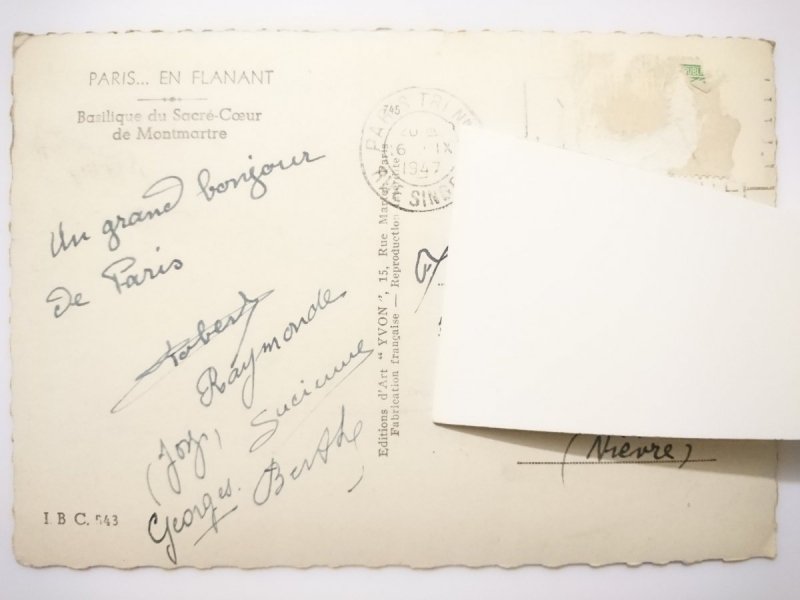 PARIS... EN FLANANT
Basilique du Sacré-Cœur
de Montmartre
Un grand bonjour
de Paris
Robert
Raymonde
Lucienne
Georges. Berthe
I. B C. 543
Editions d'Art "YVON", 15, Rue Martel, Paris
Fabrication française — Reproduction interdite
PARIS
6 IX
1947
(Nièvre)